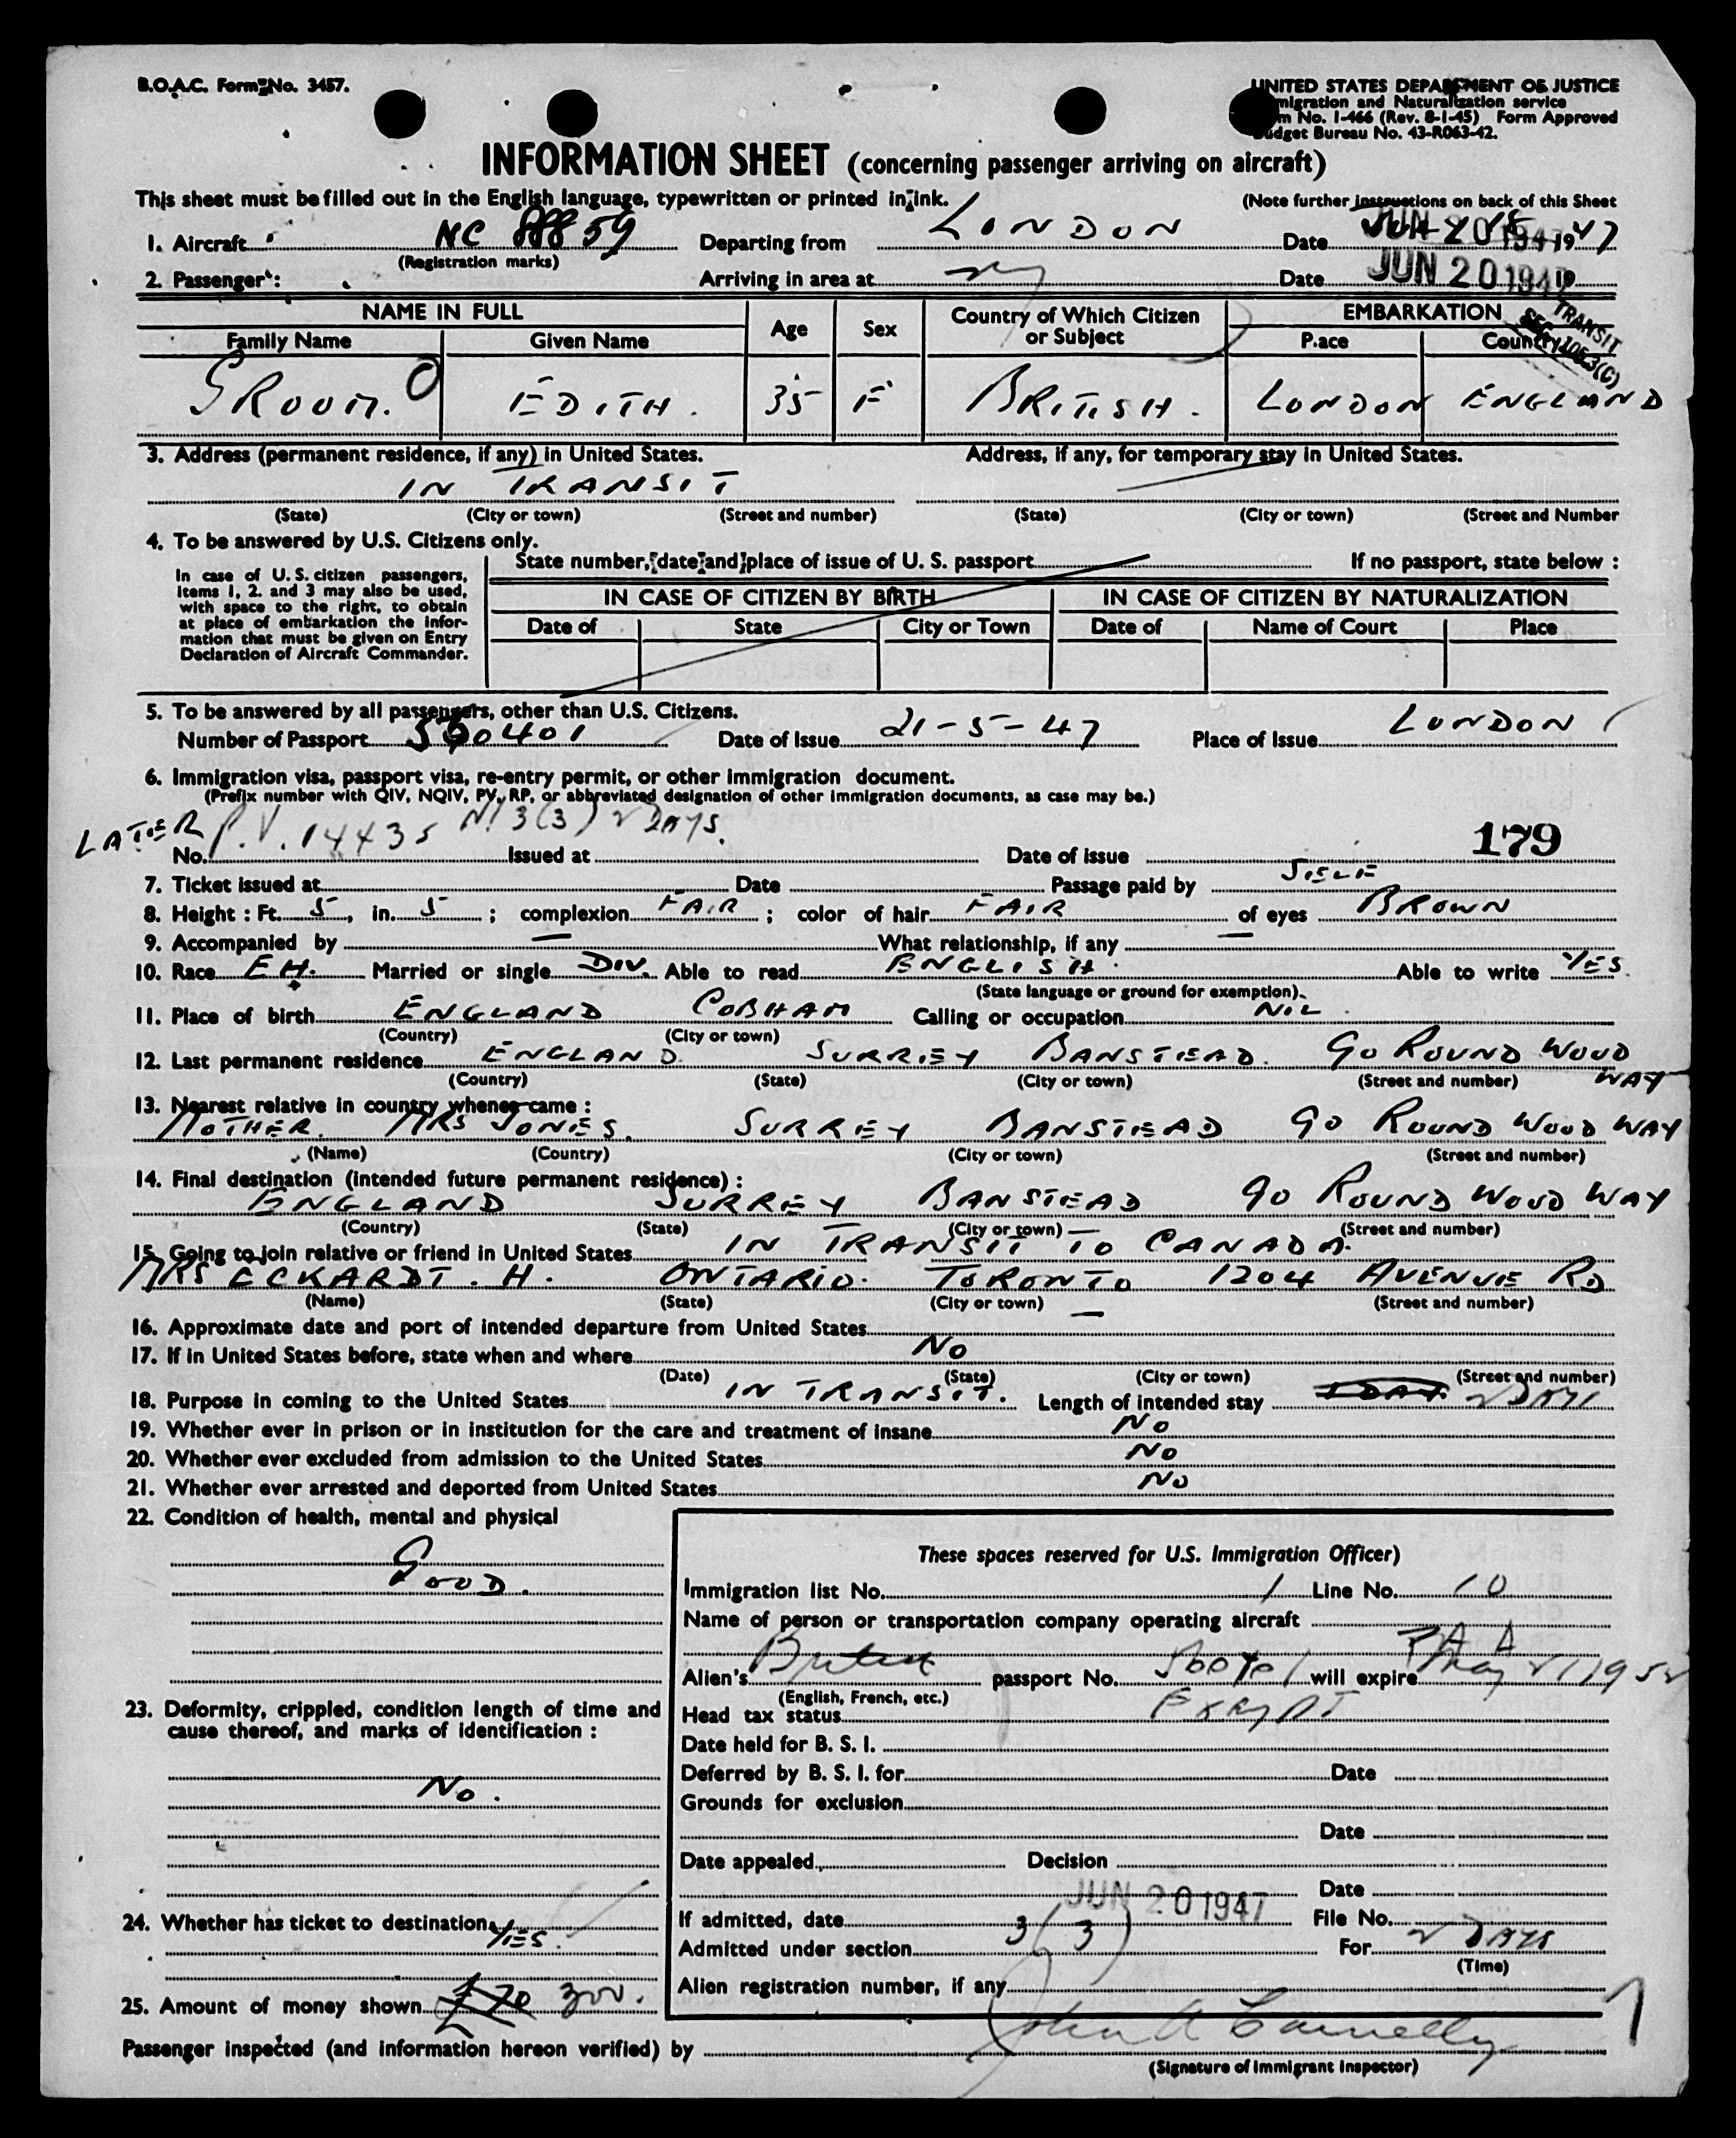 B.O.A.C. Form No. 3457.
UNITED STATES DEPARTMENT OF JUSTICE
migration and Naturalization service
m No. I-466 (Rev. 8-1-45) Form Approved
udget Bureau No. 43-R063-42.
INFORMATION SHEET (concerning passenger arriving on aircraft)
This sheet must be filled out in the English language, typewritten or printed in ink.
(Note further instructions on back of this Sheet
1. Aircraft NC 88859 Departing from LONDON Date 1947
(Registration marks)
JUN 20 1947
2. Passenger: Arriving in area at NY Date JUN 20 1947 19
NAME IN FULL Age Sex Country of Which Citizen or Subject EMBARKATION
TRANSIT
SEC.
Family Name Given Name P.ace Country
GROOM. EDITH. 35 F BRITISH. LONDON ENGLAND
3. Address (permanent residence, if any) in United States. Address, if any, for temporary stay in United States.
IN TRANSIT
(State) (City or town) (Street and number) (State) (City or town) (Street and Number
4. To be answered by U.S. Citizens only.
State number, date and place of issue of U. S. passport If no passport, state below :
In case of U. S. citizen passengers,
items 1, 2. and 3 may also be used,
with space to the right, to obtain
at place of embarkation the infor-
mation that must be given on Entry
Declaration of Aircraft Commander.
IN CASE OF CITIZEN BY BIRTH IN CASE OF CITIZEN BY NATURALIZATION
Date of State City or Town Date of Name of Court Place
5. To be answered by all passengers, other than U.S. Citizens.
Number of Passport 560401 Date of Issue 21-5-47 Place of Issue LONDON
6. Immigration visa, passport visa, re-entry permit, or other immigration document.
(Prefix number with QIV, NQIV, PV, RP, or abbreviated designation of other immigration documents, as case may be.)
LATER P.V. 14435 3(3) 2 DAYS.
179
No. Issued at Date of issue
7. Ticket issued at Date Passage paid by SELF
8. Height : Ft. 5, in. 5 ; complexion FAIR ; color of hair FAIR of eyes BROWN
9. Accompanied by — What relationship, if any —
10. Race EH. Married or single DIV. Able to read ENGLISH. Able to write YES.
(State language or ground for exemption).
11. Place of birth ENGLAND COBHAM Calling or occupation NIL.
(Country) (City or town)
12. Last permanent residence ENGLAND. SURREY BANSTEAD. 90 ROUND WOOD WAY
(Country) (State) (City or town) (Street and number)
13. Nearest relative in country whence came :
MOTHER. MRS JONES. SURREY BANSTEAD 90 ROUND WOOD WAY
(Name) (Country) (City or town) (Street and number)
14. Final destination (intended future permanent residence) :
ENGLAND SURREY BANSTEAD 90 ROUND WOOD WAY
(Country) (State) (City or town) (Street and number)
15. Going to join relative or friend in United States IN TRANSIT TO CANADA.
MRS ECKARDT. H. ONTARIO. TORONTO 1204 AVENUE RD
(Name) (State) (City or town) (Street and number)
16. Approximate date and port of intended departure from United States —
17. If in United States before, state when and where NO
(Date) (State) (City or town) (Street and number)
18. Purpose in coming to the United States IN TRANSIT. Length of intended stay 1 DAY. 2 DAYS
19. Whether ever in prison or in institution for the care and treatment of insane NO
20. Whether ever excluded from admission to the United States NO
21. Whether ever arrested and deported from United States NO
22. Condition of health, mental and physical
GOOD.
These spaces reserved for U.S. Immigration Officer)
Immigration list No. 1 Line No. 10
Name of person or transportation company operating aircraft
PAA
Alien's British passport No. 560401 will expire May 21 1952
(English, French, etc.)
23. Deformity, crippled, condition length of time and
cause thereof, and marks of identification :
NO.
Head tax status EXEMPT
Date held for B. S. I.
Deferred by B. S. I. for Date
Grounds for exclusion
Date
Date appealed Decision
Date
JUN 20 1947
24. Whether has ticket to destination YES.
If admitted, date File No.
Admitted under section 3(3) For 2 DAYS
(Time)
Alien registration number, if any
25. Amount of money shown £70 300.
Passenger inspected (and information hereon verified) by John A Connelly
(Signature of Immigrant Inspector)